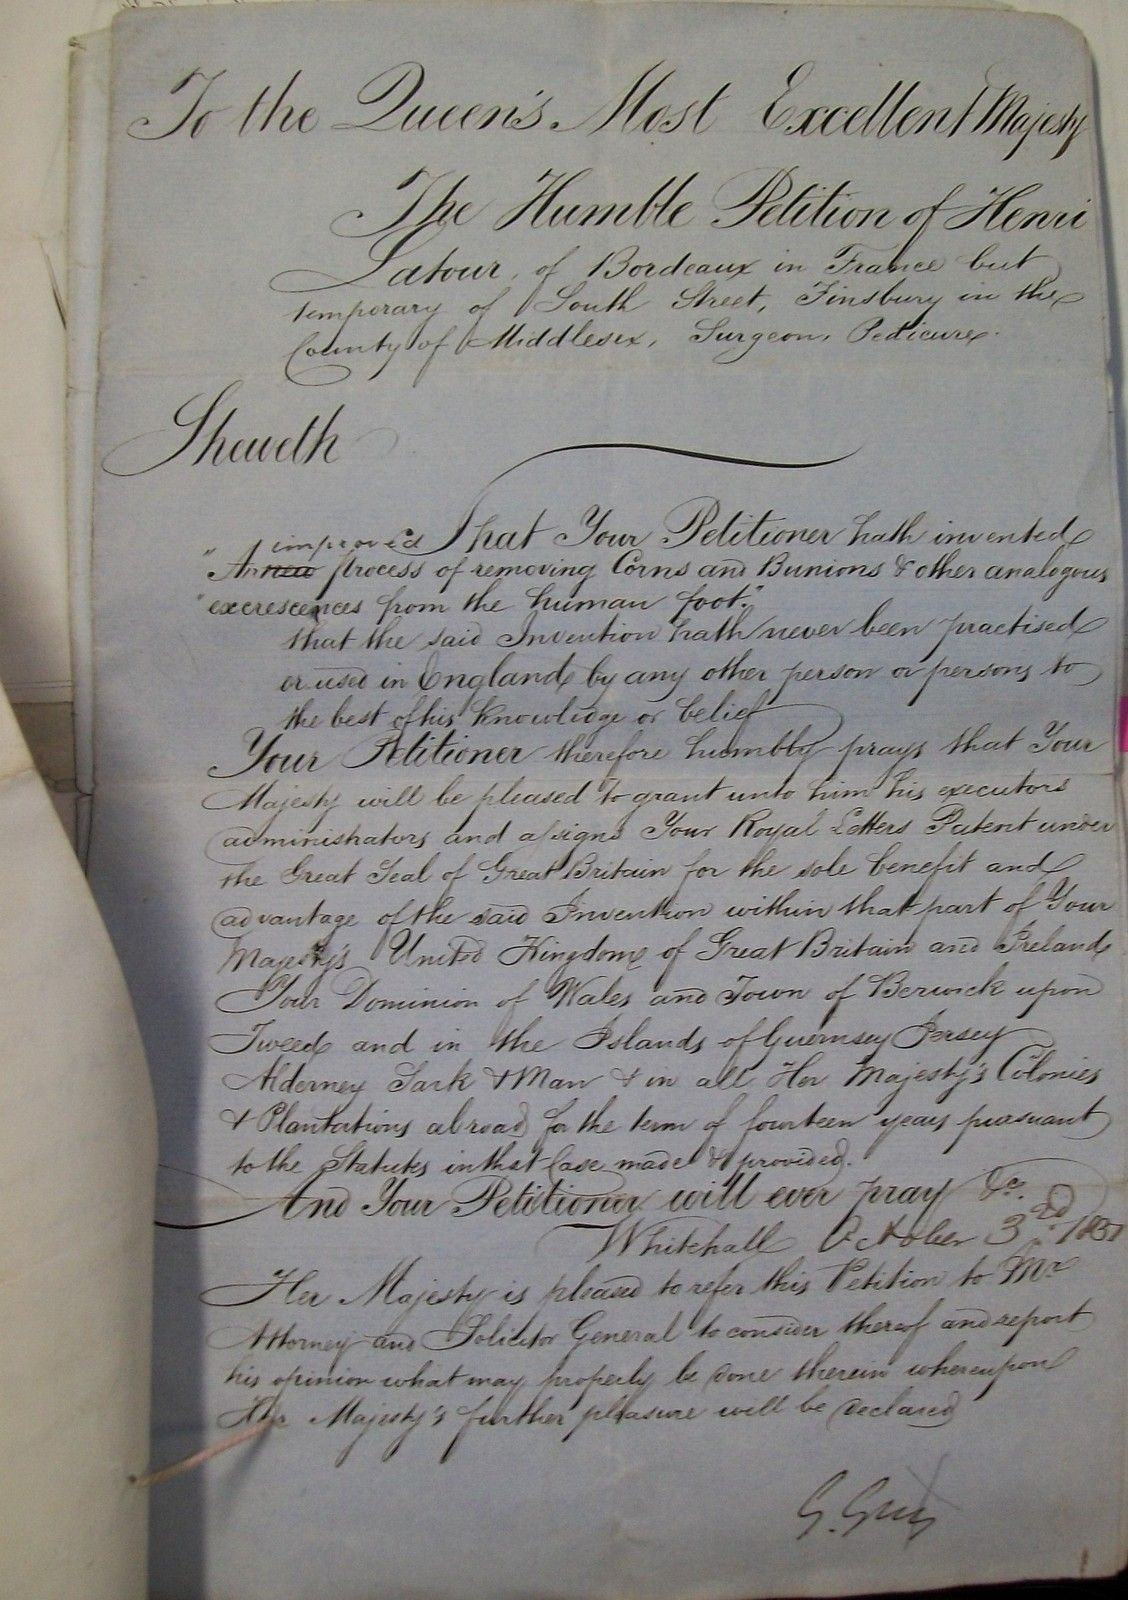 To the Queen's Most Excellent Majesty
The Humble Petition of Henri
Latour, of Bordeaux in France but
temporary of South Street, Finsbury in the
County of Middlesex, Surgeon Pedicure.
Sheweth
improved That Your Petitioner hath invented
"An new process of removing Corns and Bunions & other analogous
"excrescences from the human foot."
that the said Invention hath never been practised
or used in England by any other person or persons to
the best of his knowlidge or belief
Your Petitioner therefore humbly prays that Your
Majesty will be pleased to grant unto him his executors
administrators and assigns Your Royal Letters Patent under
the Great Seal of Great Britain for the sole benefit and
advantage of the said Invention within that part of Your
Majesty's United Kingdom of Great Britain and Ireland
Your Dominion of Wales and Town of Berwick upon
Tweed and in the Islands of Guernsey Jersey
Alderney Sark & Man & in all Her Majesty's Colonies
& Plantations abroad for the term of fourteen years pursuant
to the Statutes in that Case made & provided.
And Your Petitioner will ever pray &c.
Whitehall October 3rd 1851
Her Majesty is pleased to refer this Petition to Mr
Attorney and Solicitor General to consider thereof and report
his opinion what may properly be done therein whereupon
Her Majesty's further pleasure will be declared
G. Grey